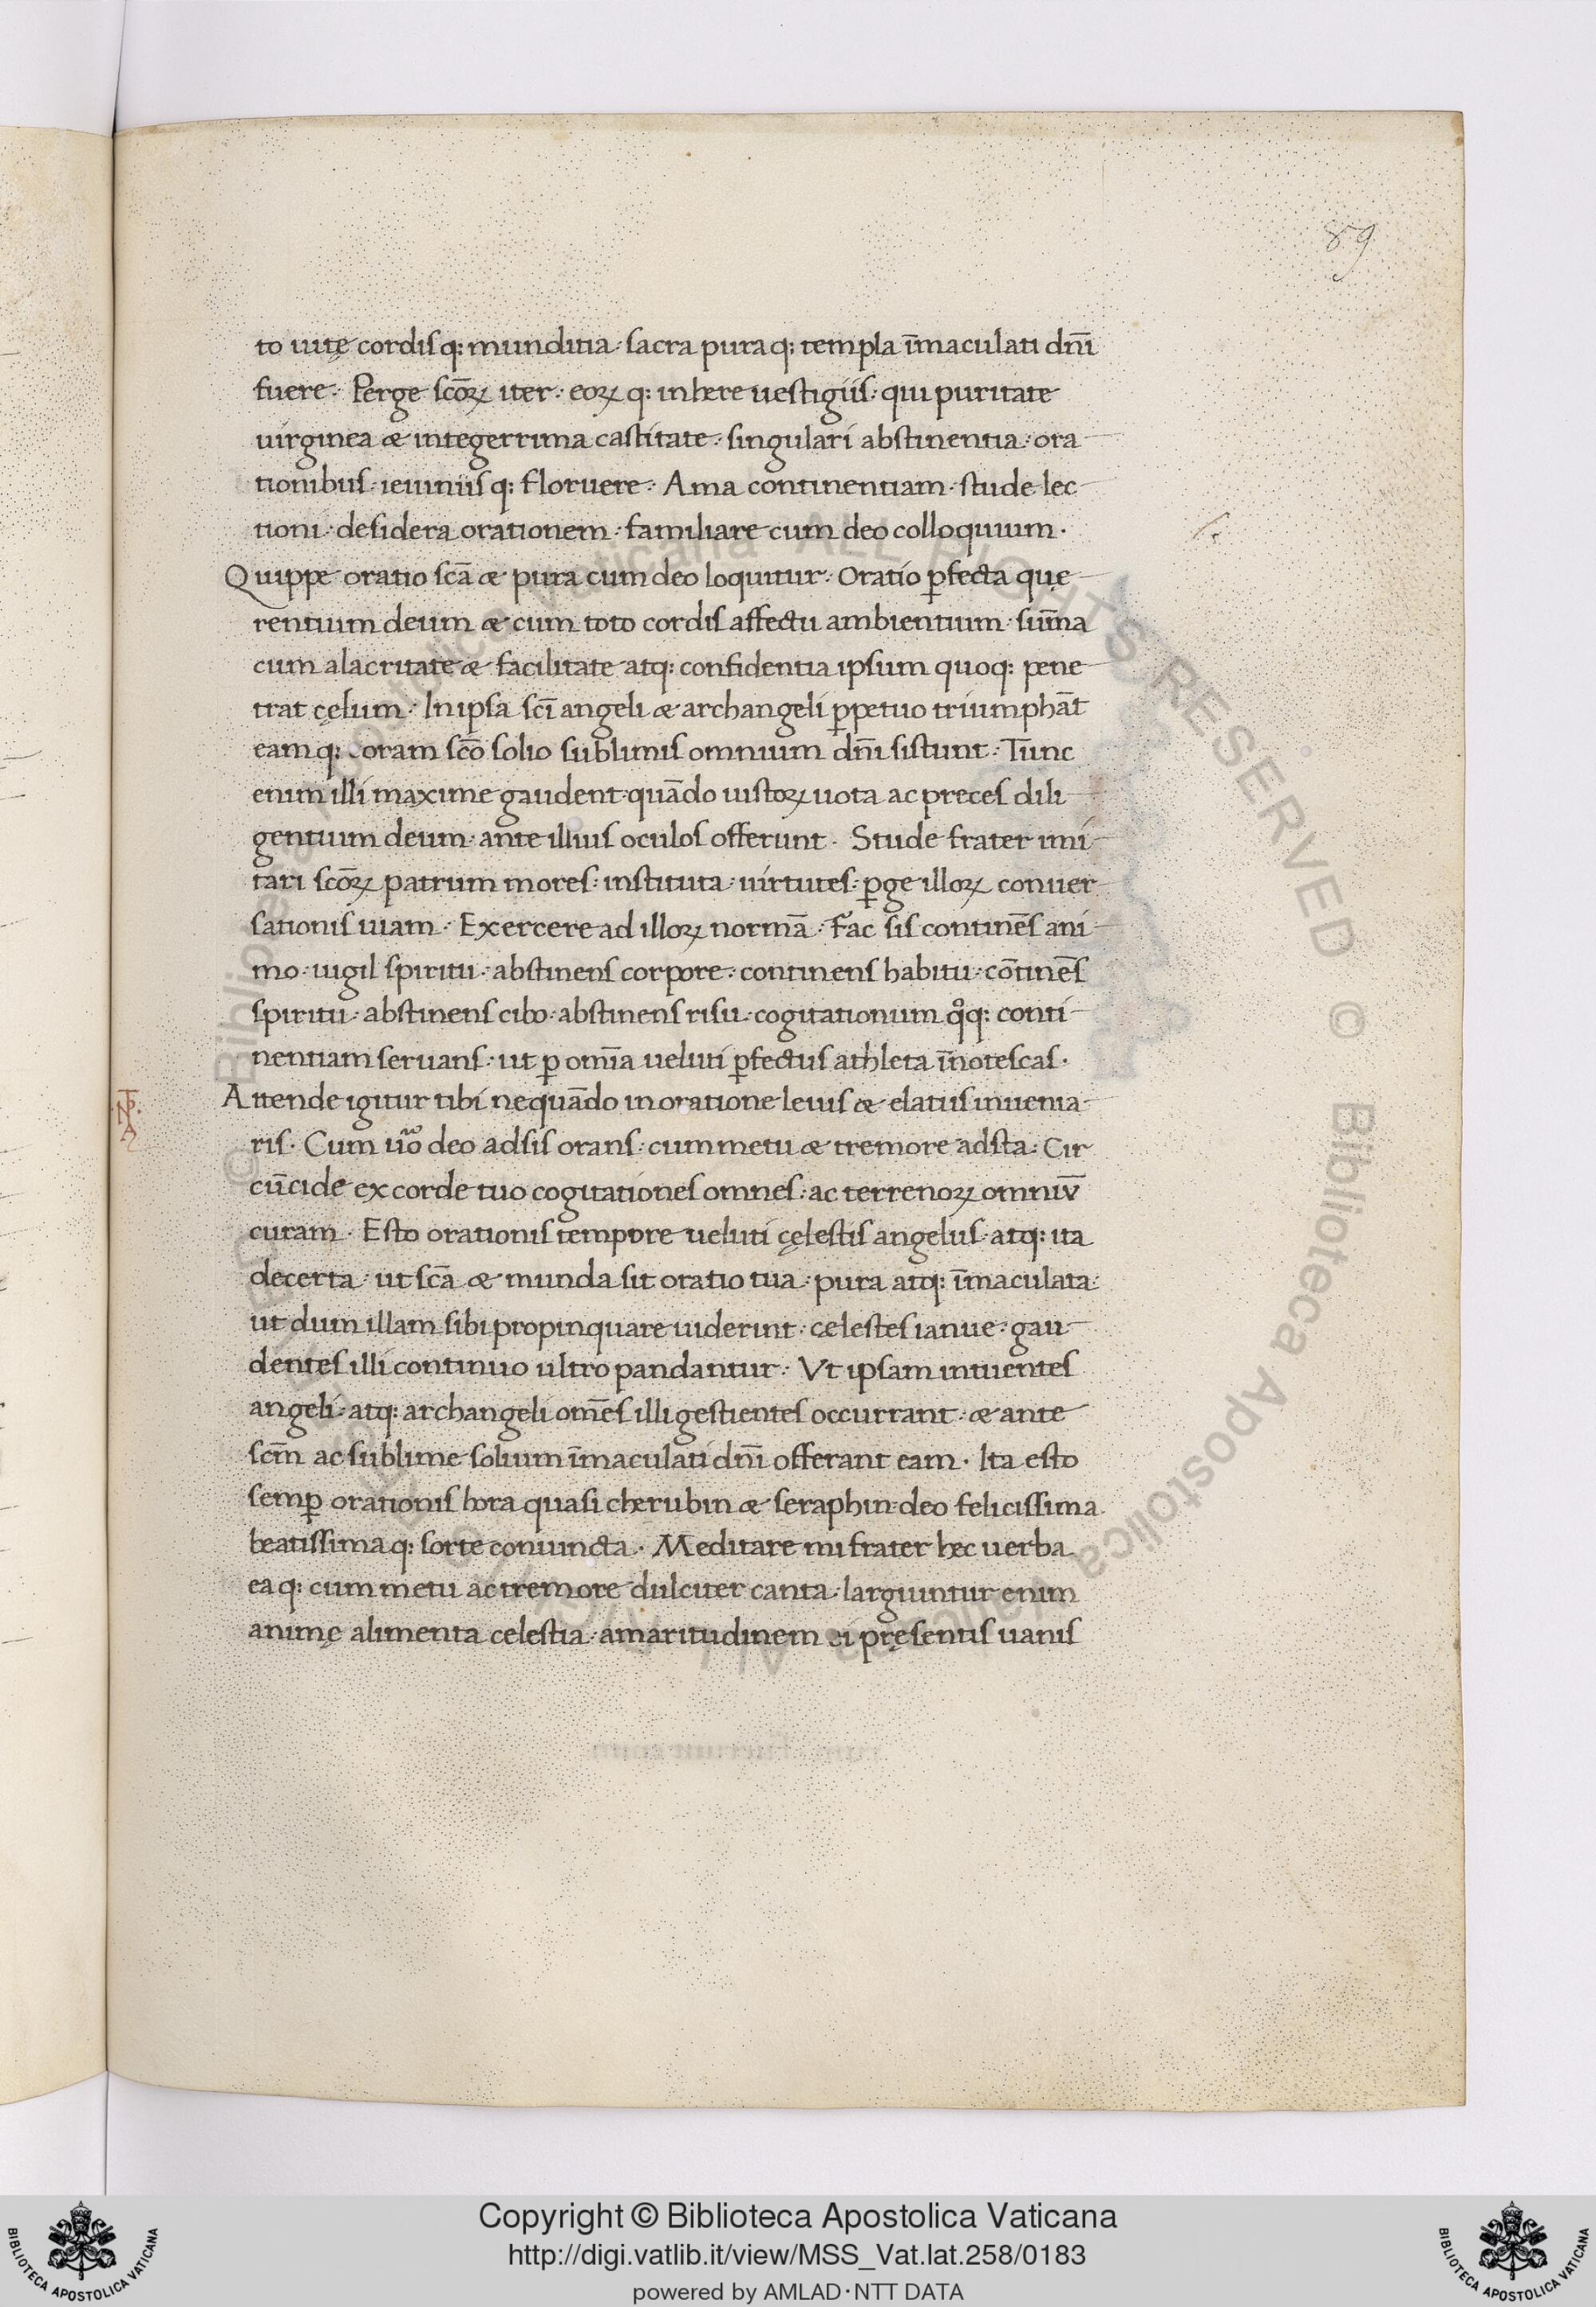 89
to uitę cordisq: munditia · sacra puraq: templa im̄aculati dn̄i
fuere · Perge scōꝝ iter · eoꝝ q: inhere uestigiis · qui puritate
uirginea æ integerrima castitate · singulari abstinentia · ora
tionibus · ieiuniisq: floruere · Ama continentiam · stude lec
tioni · desidera orationem · familiare cum deo colloquium ·
Quippe oratio scā æ pura cum deo loquitur · Oratio ꝑfecta quę
rentium deum æ cum toto cordis affectu ambientium · sum̄a
cum alacritate æ facilitate atq: confidentia ipsum quoq: pene
trat cęlum · In ipsa scī angeli æ archangeli ꝑpetuo triumphāt
eamq: coram scō solio sublimis omnium dn̄i sistunt · Tunc
enim illi maxime gaudent · quādo iustoꝝ uota ac preces dili
gentium deum · ante illius oculos offerunt · Stude frater imi
tari scōꝝ patrum mores · instituta · uirtutes · ꝑge illoꝝ conuer
sationis uiam · Exercere ad illoꝝ normā · Fac sis continēs ani
mo · uigil spiritu · abstinens corpore · continens habitu · cōtinēs
spiritu · abstinens cibo · abstinens risu · cogitationum qͦq: conti
nentiam seruans · ut ꝑ om̄ia ueluti ꝑfectus athleta in̄otescas ·
Attende igitur tibi nequādo in oratione leuis æ elatus inuenia
ris · Cum ūo deo adsis orans · cum metu æ tremore adsta · Cir
cūcide ex corde tuo cogitationes omnes · ac terrenoꝝ omniū
curam · Esto orationis tempore ueluti cęlestis angelus · atq: ita
decerta · ut scā æ munda sit oratio tua · pura atq: im̄aculata ·
ut dum illam sibi propinquare uiderint · cęlestes ianue · gau
dentes illi continuo ultro pandantur · Vt ipsam intuentes
angeli · atq: archangeli om̄es illi gestientes occurrant · æ ante
scm̄ ac sublime solium im̄aculati dn̄i offerant eam · Ita esto
semꝑ orationis hora quasi cherubin æ seraphin deo felicissima
beatissimaq: sorte coniuncta · Meditare mi frater hec uerba
eaq: cum metu ac tremore dulciter canta · largiuntur enim
animę alimenta celestia · amaritudinem ei pręsentis uanis
© Biblioteca Apostolica Vaticana ALL RIGHTS RESERVED
Copyright © Biblioteca Apostolica Vaticana
http://digi.vatlib.it/view/MSS_Vat.lat.258/0183
powered by AMLAD · NTT DATA
BIBLIOTECA APOSTOLICA VATICANA
BIBLIOTECA APOSTOLICA VATICANA